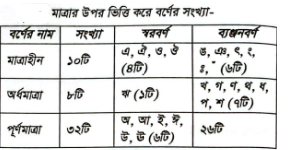 মাত্রার উপর ভিত্তি করে বর্ণের সংখ্যা-
বর্ণের নাম সংখ্যা স্বরবর্ণ ব্যঞ্জনবর্ণ
মাত্রাহীন ১০টি এ, ঐ, ও, ঔ (৪টি) ঙ, ঞ, ৎ, ং, ঃ, ঁ (৬টি)
অর্ধমাত্রা ৮টি ঋ (১টি) খ, গ, ণ, থ, ধ, প, শ (৭টি)
পূর্ণমাত্রা ৩২টি অ, আ, ই, ঈ, উ, ঊ (৬টি) ২৬টি